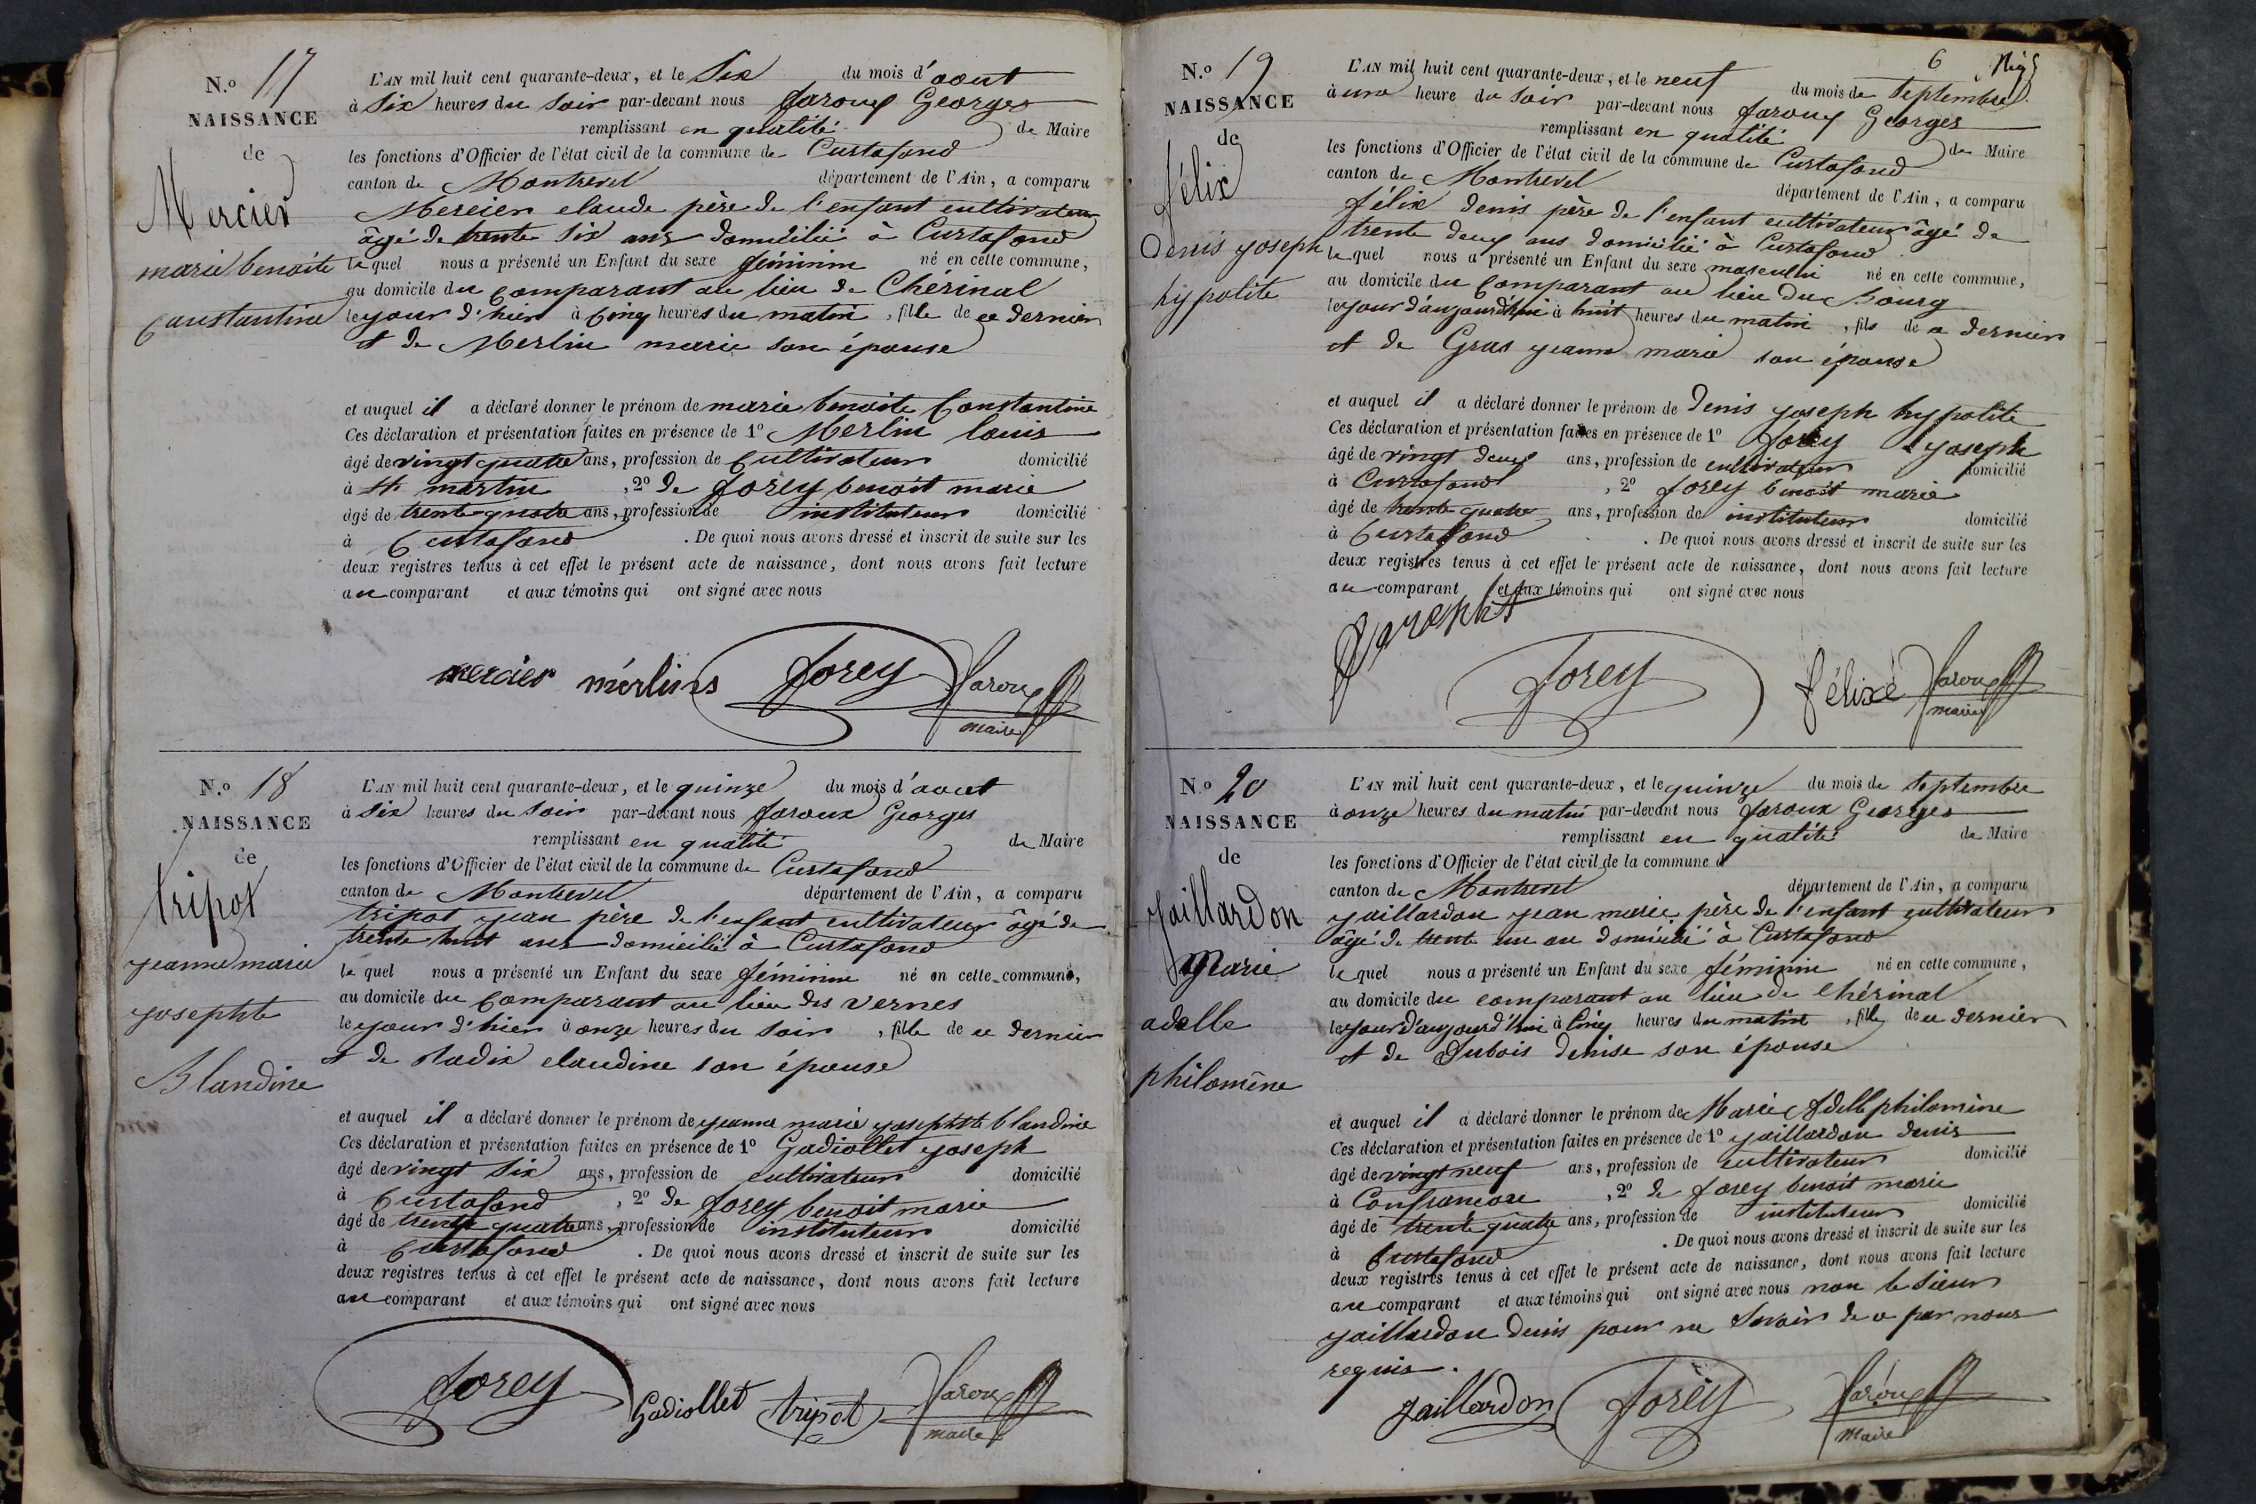 N.o 17
NAISSANCE
de
Mercier
marie benoite
Constantine
L'AN mil huit cent quarante-deux, et le Six du mois d'aout
à Six heures du Soir par-devant nous Jaroux Georges
remplissant en qualité de Maire
les fonctions d'Officier de l'état civil de la commune de Curtafond
canton de Montrevel département de l'Ain, a comparu
Mercier claude père de l'enfant cultivateur
âgé de trente Six ans domicilié à Curtafond
lequel nous a présenté un Enfant du sexe féminin né en cette commune,
au domicile du Comparant au lieu de Chérinal
le jour d'hier à Cinq heures du matin, fille de ce dernier
et de Merlin marie son épouse
et auquel il a déclaré donner le prénom de marie benoite Constantine
Ces déclaration et présentation faites en présence de 1o Merlin louis
âgé de vingt quatre ans, profession de Cultivateur domicilié
à St martin, 2o de forey benoit marie
âgé de trente quatre ans, profession de instituteur domicilié
à Curtafond. De quoi nous avons dressé et inscrit de suite sur les
deux registres tenus à cet effet le présent acte de naissance, dont nous avons fait lecture
au comparant et aux témoins qui ont signé avec nous
mercier mérlins forey Jaroux
maire
N.o 18
NAISSANCE
de
tripot
jeanne marie
josephte
Blandine
L'AN mil huit cent quarante-deux, et le quinze du mois d'aout
à Six heures du Soir par-devant nous Jaroux Georges
remplissant en qualité de Maire
les fonctions d'Officier de l'état civil de la commune de Curtafond
canton de Montrevel département de l'Ain, a comparu
tripot jean père de l'enfant cultivateur âgé de
trente huit ans domicilié à Curtafond
lequel nous a présenté un Enfant du sexe féminin né en cette commune,
au domicile du Comparant au lieu des vernes
le jour d'hier à onze heures du soir, fille de ce dernier
et de Nadix claudine son épouse
et auquel il a déclaré donner le prénom de jeanne marie josephte blandine
Ces déclaration et présentation faites en présence de 1o Gadiollet joseph
âgé de vingt Six ans, profession de cultivateur domicilié
à Curtafond, 2o de forey benoit marie
âgé de trente quatre ans, profession de instituteur domicilié
à Curtafond. De quoi nous avons dressé et inscrit de suite sur les
deux registres tenus à cet effet le présent acte de naissance, dont nous avons fait lecture
au comparant et aux témoins qui ont signé avec nous
forey Gadiollet tripot Jaroux
maire
6
N.o 19
NAISSANCE
de
félix
Denis joseph
hypolite
L'AN mil huit cent quarante-deux, et le neuf du mois de Septembre
à une heure du Soir par-devant nous Jaroux Georges
remplissant en qualité de Maire
les fonctions d'Officier de l'état civil de la commune de Curtafond
canton de Montrevel département de l'Ain, a comparu
félix denis père de l'enfant cultivateur âgé de
trente deux ans domicilié à Curtafond
lequel nous a présenté un Enfant du sexe masculin né en cette commune,
au domicile du Comparant au lieu du Bourg
le jour d'aujourd'hui à huit heures du matin, fils de ce dernier
et de Gras jeanne marie son épouse
et auquel il a déclaré donner le prénom de Denis joseph hypolite
Ces déclaration et présentation faites en présence de 1o forey joseph
âgé de vingt deux ans, profession de cultivateur domicilié
à Curtafond, 2o forey benoit marie
âgé de trente quatre ans, profession de instituteur domicilié
à Curtafond. De quoi nous avons dressé et inscrit de suite sur les
deux registres tenus à cet effet le présent acte de naissance, dont nous avons fait lecture
au comparant et aux témoins qui ont signé avec nous
forey félixe Jaroux
maire
N.o 20
NAISSANCE
de
Jaillardon
Marie
adelle
philomène
L'AN mil huit cent quarante-deux, et le quinze du mois de Septembre
à onze heures du matin par-devant nous Jaroux Georges
remplissant en qualité de Maire
les fonctions d'Officier de l'état civil de la commune d
canton de Montrevel département de l'Ain, a comparu
jaillardon jean marie père de l'enfant cultivateur
âgé de trente un an domicilié à Curtafond
lequel nous a présenté un Enfant du sexe féminin né en cette commune,
au domicile du comparant au lieu de Chérinal
le jour d'aujourd'hui à Cinq heures du matin, fille de ce dernier
et de Dubois denise son épouse
et auquel il a déclaré donner le prénom de Marie Adelle philomène
Ces déclaration et présentation faites en présence de 1o jaillardon denis
âgé de vingt neuf ans, profession de cultivateur domicilié
à Confrançon, 2o de forey benoit marie
âgé de trente quatre ans, profession de instituteur domicilié
à Curtafond. De quoi nous avons dressé et inscrit de suite sur les
deux registres tenus à cet effet le présent acte de naissance, dont nous avons fait lecture
au comparant et aux témoins qui ont signé avec nous non le Sieur
jaillardon denis pour ne Savoir de ce par nous
requis.
Jaillardon forey Jaroux
maire